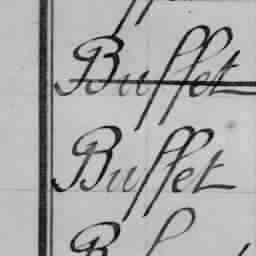 Buffet
Buffet